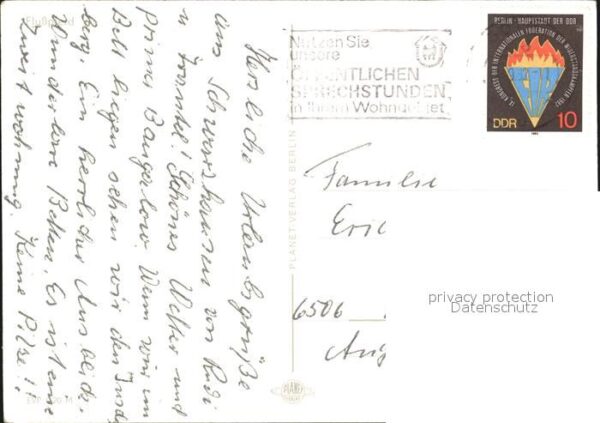 Herzliche Urlaubsgrüße
aus Schwarzhausen von Rudi
u Frambel! Schönes Wetter und
prima Bungalow. Wenn wir im
Bett liegen sehen wir den Insels
berg. Ein herrlicher Ausblick,
Wunderbare Betten, Es ist eine
Zweitwohnung. Keine Pilze!!
Nutzen Sie
unsere
ÖFFENTLICHEN
SPRECHSTUNDEN
in Ihrem Wohngebiet
BERLIN · HAUPTSTADT DER DDR
IX. KONGRESS DER INTERNATIONALEN FÖDERATION DER WIDERSTANDSKÄMPFER 1982
DDR 10
1982
PLANET VERLAG BERLIN
PLANET
Familie
Eric
6506
privacy protection
Datenschutz